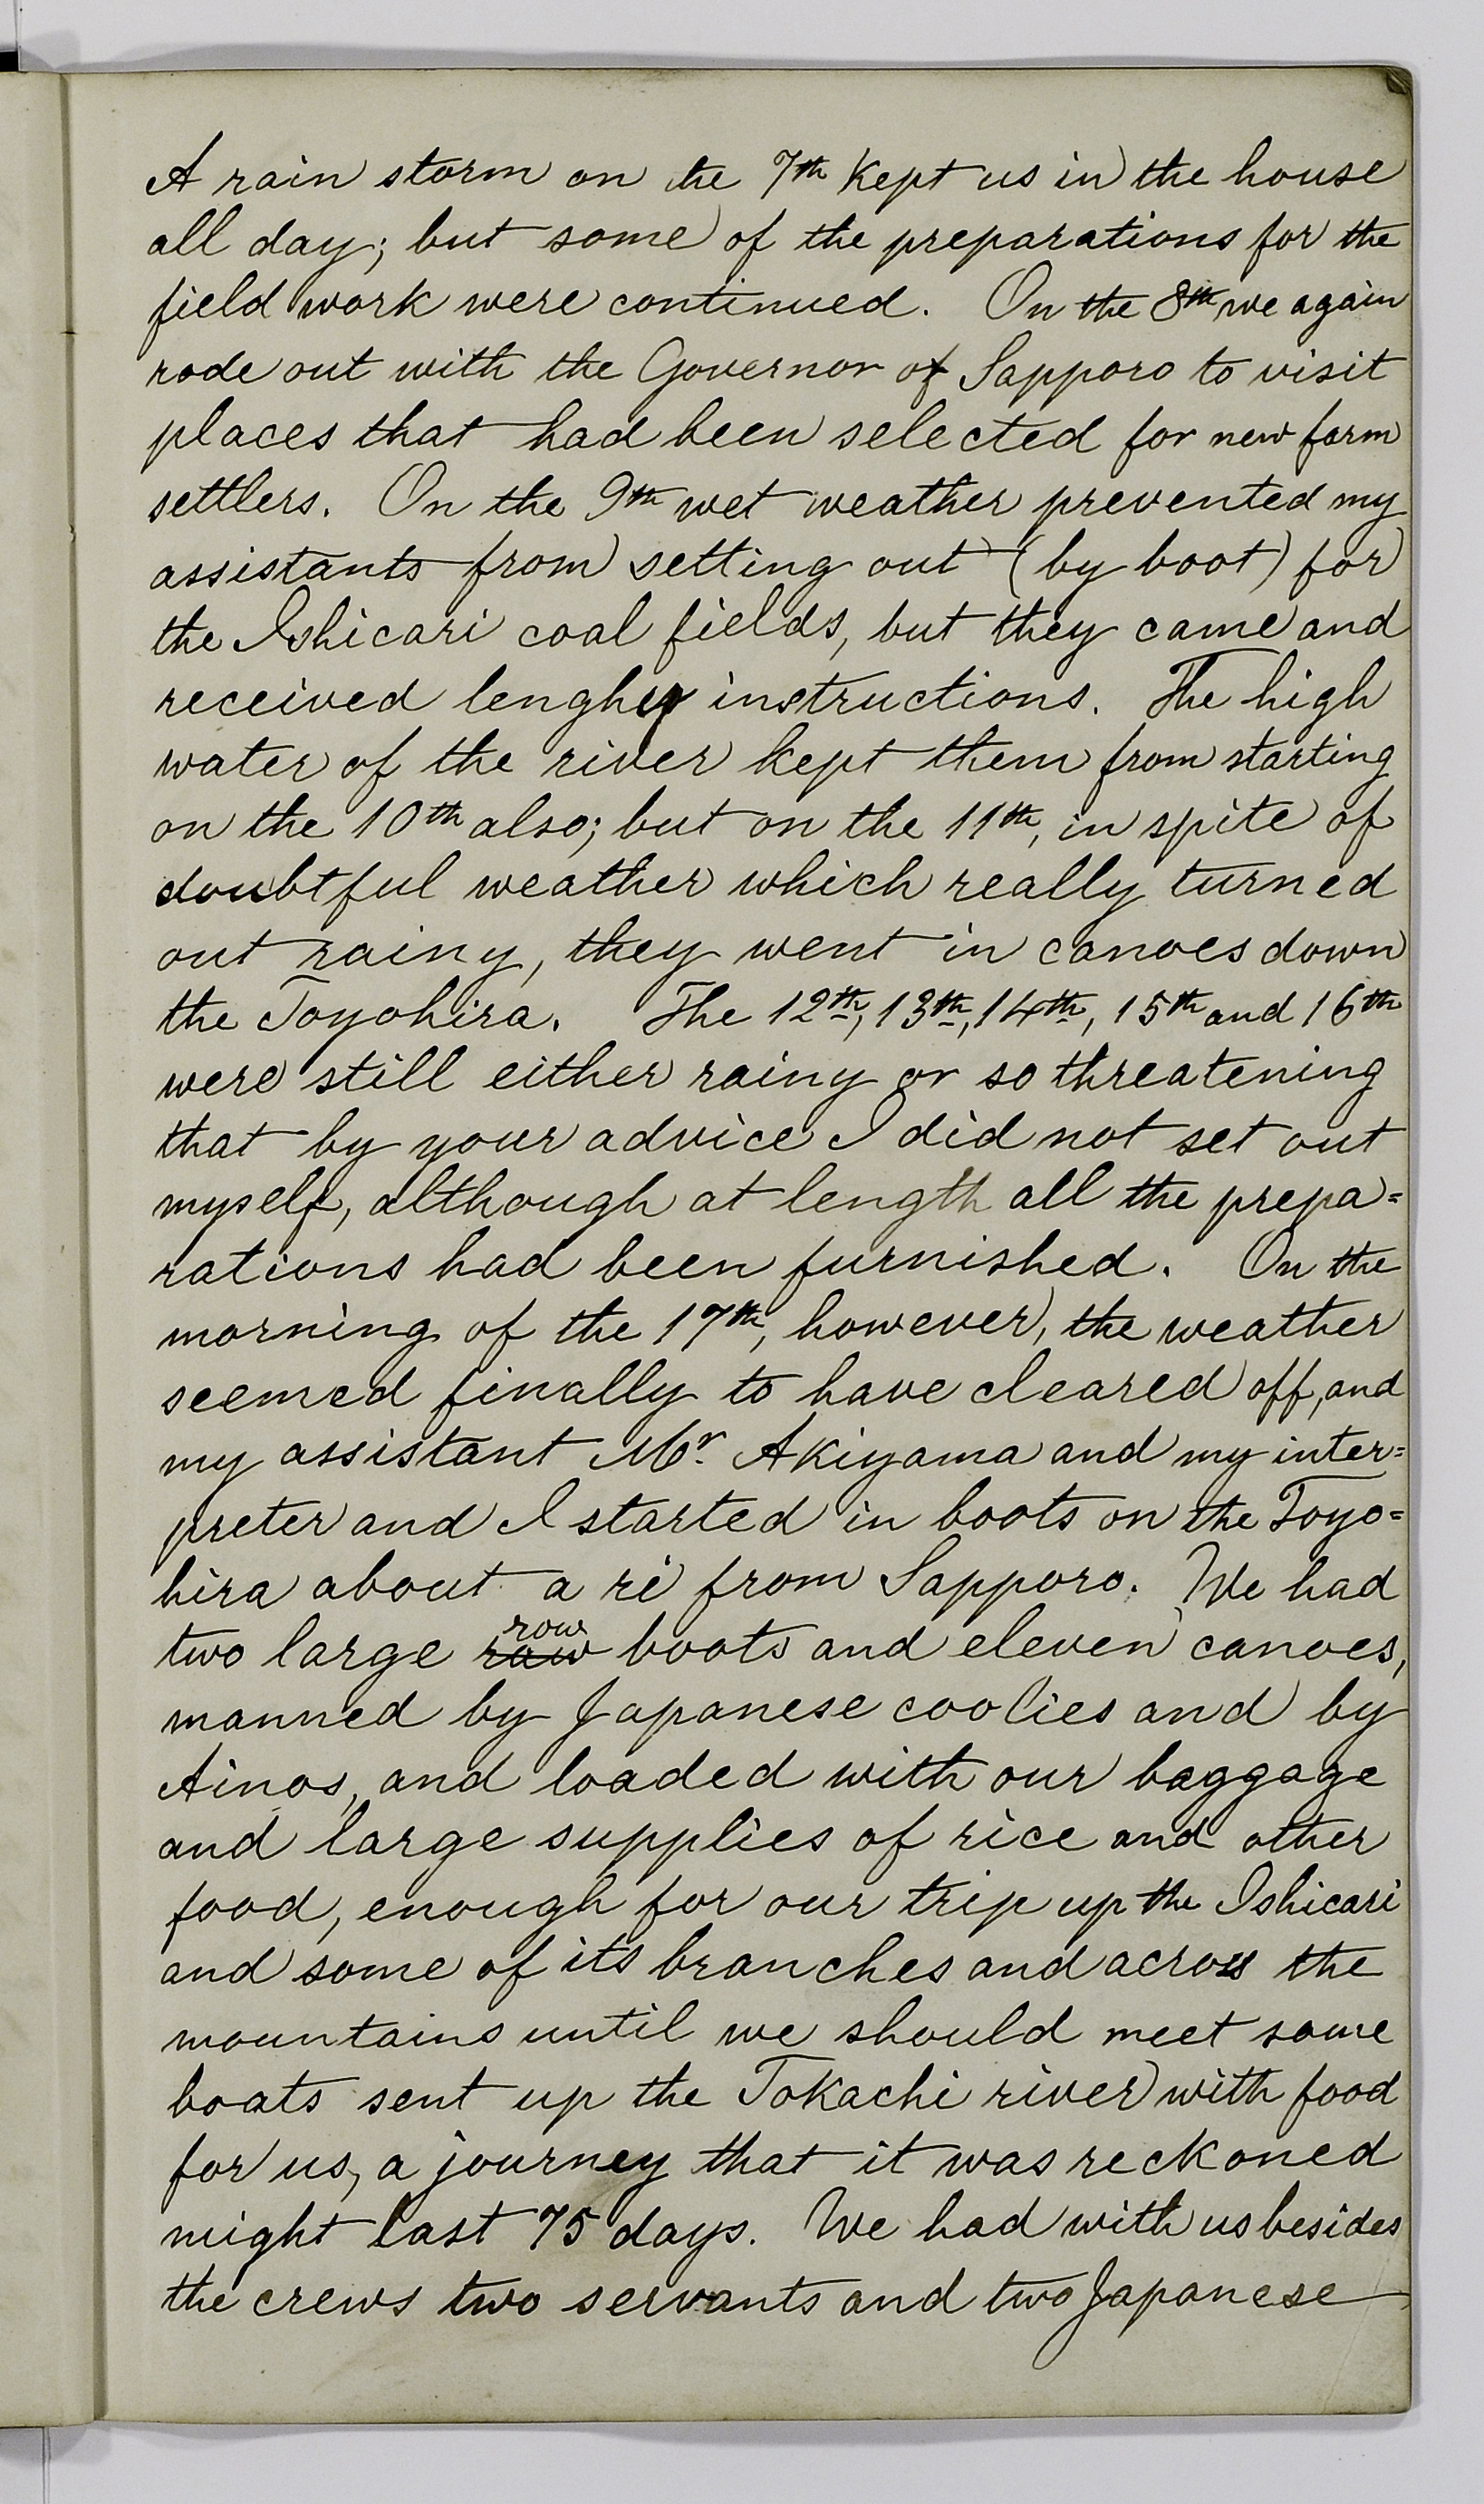 A rain storm on the 7th kept us in the house
all day; but some of the preparations for the
field work were continued. On the 8th we again
rode out with the Governor of Sapporo to visit
places that had been selected for new farm
settlers. On the 9th wet weather prevented my
assistants from setting out (by boat) for
the Ishicari coal fields, but they came and
received lenghy instructions. The high
water of the river kept them from starting
on the 10th also; but on the 11th, in spite of
doubtful weather which really turned
out rainy, they went in canoes down
the Toyohira. The 12th, 13th, 14th, 15th and 16th
were still either rainy or so threatening
that by your advice I did not set out
myself, although at length all the prepa=
rations had been furnished. On the
morning of the 17th, however, the weather
seemed finally to have cleared off, and
my assistant Mr. Akiyama and my inter=
preter and I started in boats on the Toyo=
hira about a ri from Sapporo. We had
two large raw row boats and eleven canoes,
manned by Japanese coolies and by
Ainos, and loaded with our baggage
and large supplies of rice and other
food, enough for our trip up the Ishicari
and some of its branches and across the
mountains until we should meet some
boats sent up the Tokachi river with food
for us, a journey that it was reckoned
might last 75 days. We had with us besides
the crews two servants and two Japanese